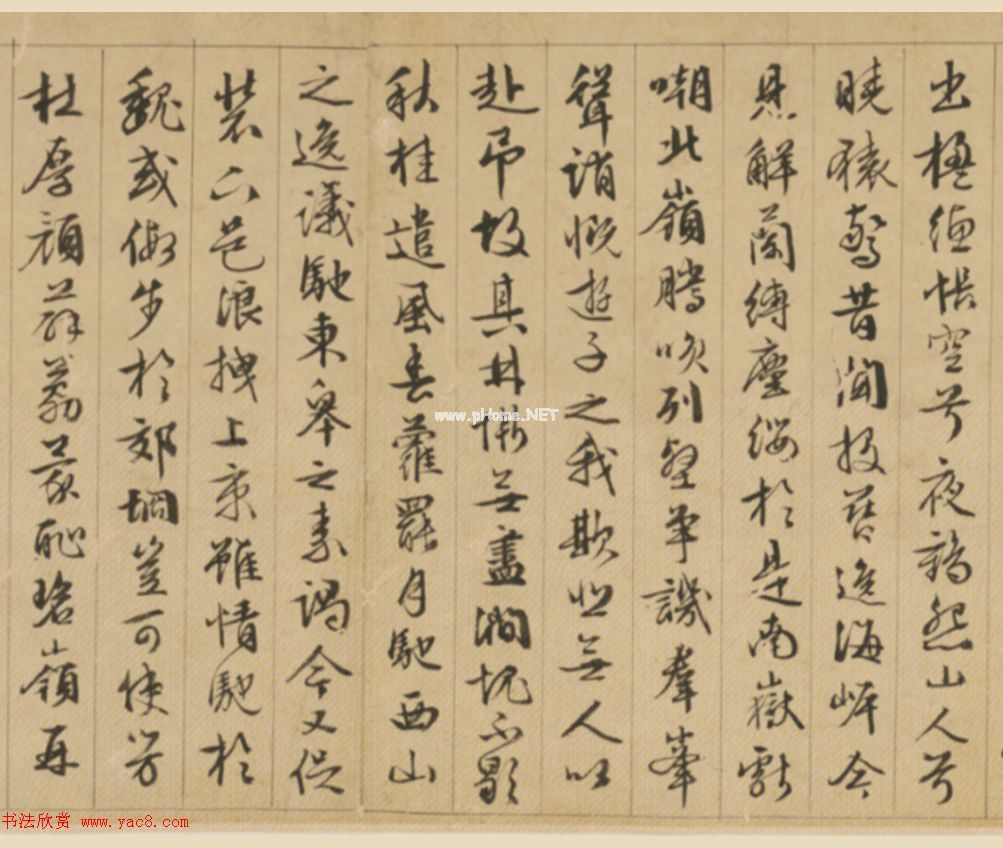 出楹繐帳空兮夜鶴怨山人兮
曉猿驚昔聞投簪逸海岸今
見解蘭縛塵纓於是南嶽獻
嘲北嶺騰咲列壑爭譏羣峯
聳誚慨遊子之我欺悲無人以
赴弔故其林慚無盡澗愧不歇
秋桂遣風春蘿罷月馳西山
之逸議馳東皋之素謁今又促
裝下邑浪拽上京雖情馳於
魏或假步於郊坰豈可使芳
杜厚顏薜荔蒙恥碧嶺再
www.pHome.NET
书法欣赏 www.yac8.com